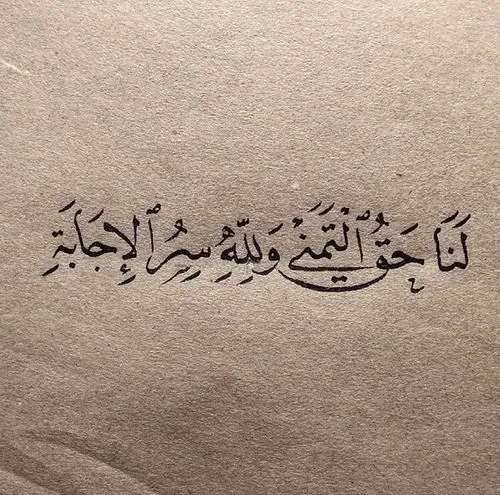 لَنَا حَقُّ ٱلْتَمَنيْ وَلِلّٰهِ سِرُ ٱلإِجَابَةِ